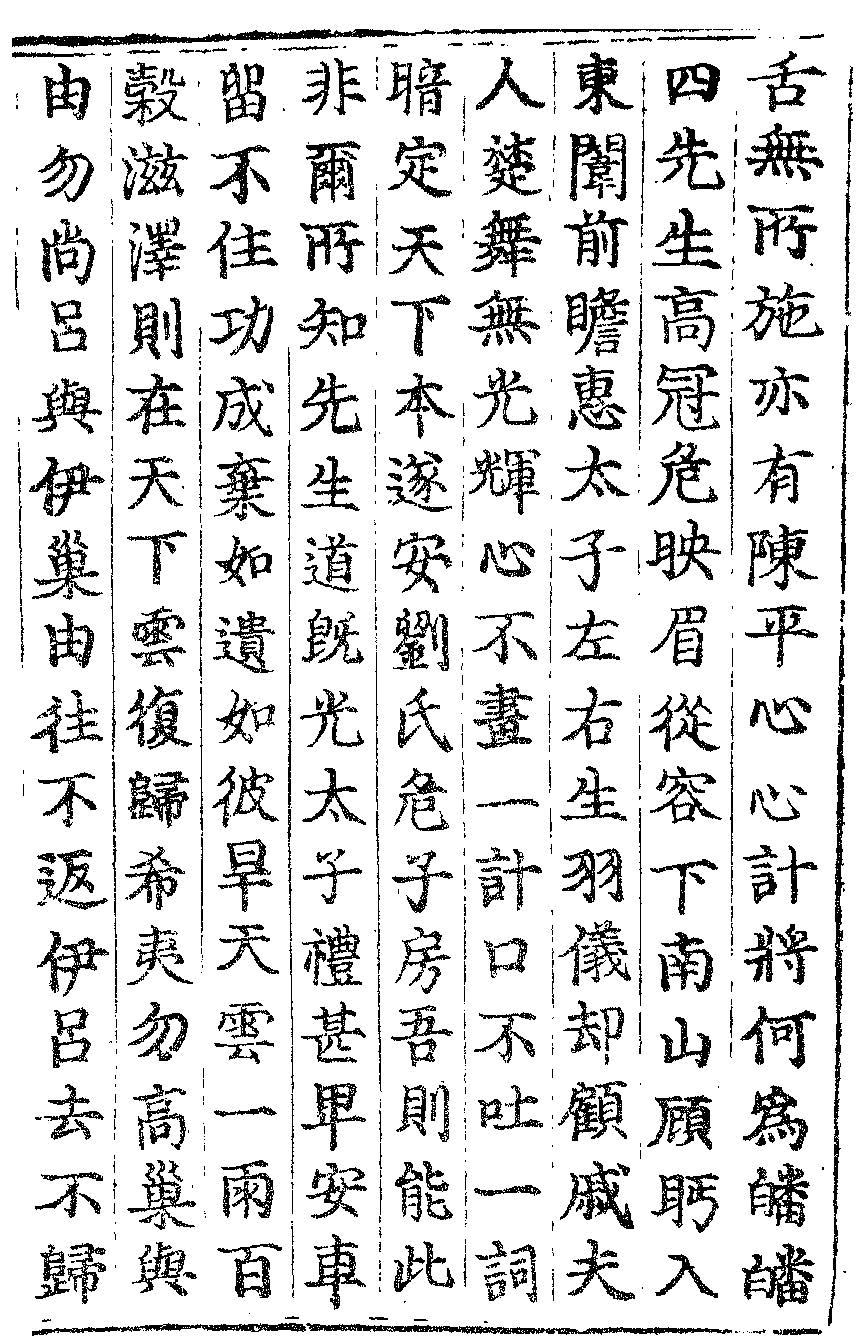 舌無所施亦有陳平心心計將何爲皤皤
四先生高冠危映眉從容下南山顧眄入
東闈前瞻惠太子左右生羽儀却顧戚夫
人楚舞無光輝心不畫一計口不吐一詞
暗定天下本遂安劉氏危子房吾則能此
非爾所知先生道既光太子禮甚卑安車
留不住功成棄如遺如彼旱天雲一雨百
穀滋澤則在天下雲復歸希夷勿高巢與
由勿尚呂與伊巢由往不返伊呂去不歸